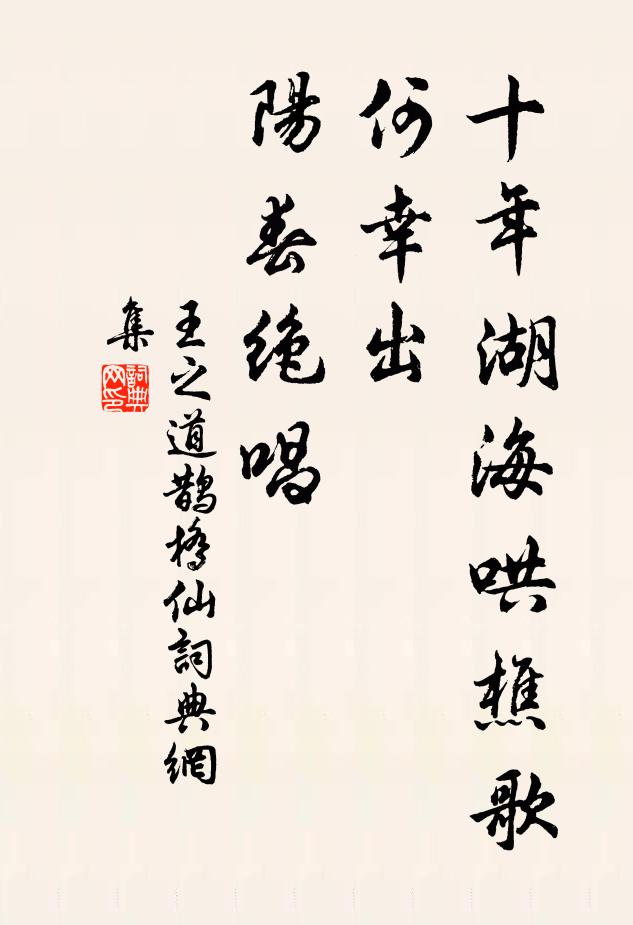 十年湖海哄樵歌
何幸出
陽春絶唱
王之道鵲橋仙詞典網
集
詞典
网印